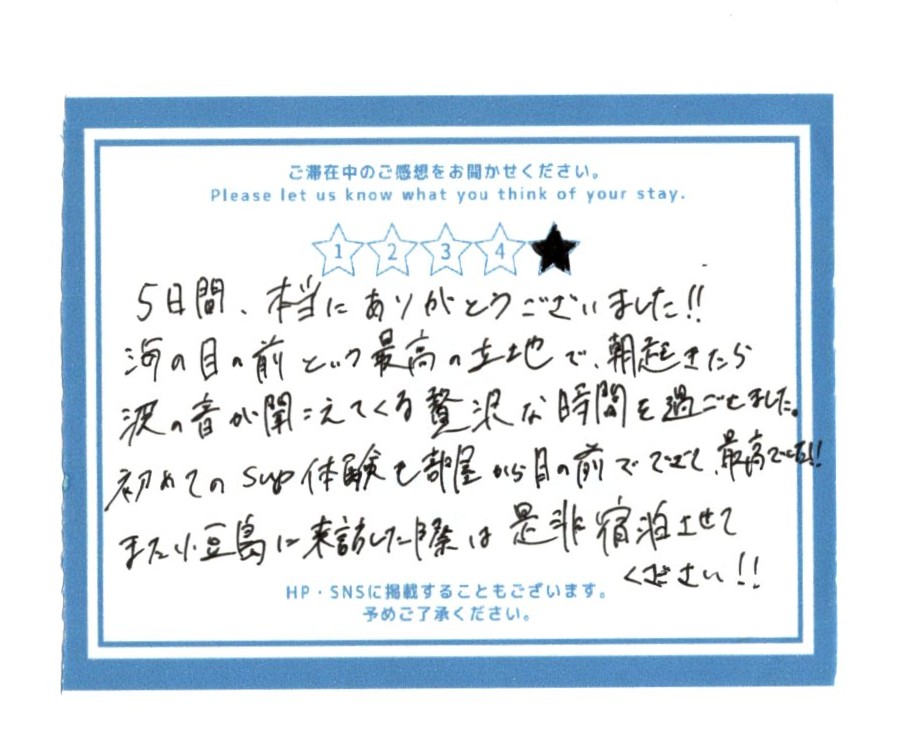 ご滞在中のご感想をお聞かせください。
Please let us know what you think of your stay.
1 2 3 4 ★
5日間、本当にありがとうございました!!
海の目の前という最高の立地で、朝起きたら
波の音が聞こえてくる贅沢な時間を過ごせました。
初めてのSup体験も部屋から目の前でできて、最高でした!!
また小豆島に来訪した際は是非宿泊させて
ください!!
HP・SNSに掲載することもございます。
予めご了承ください。